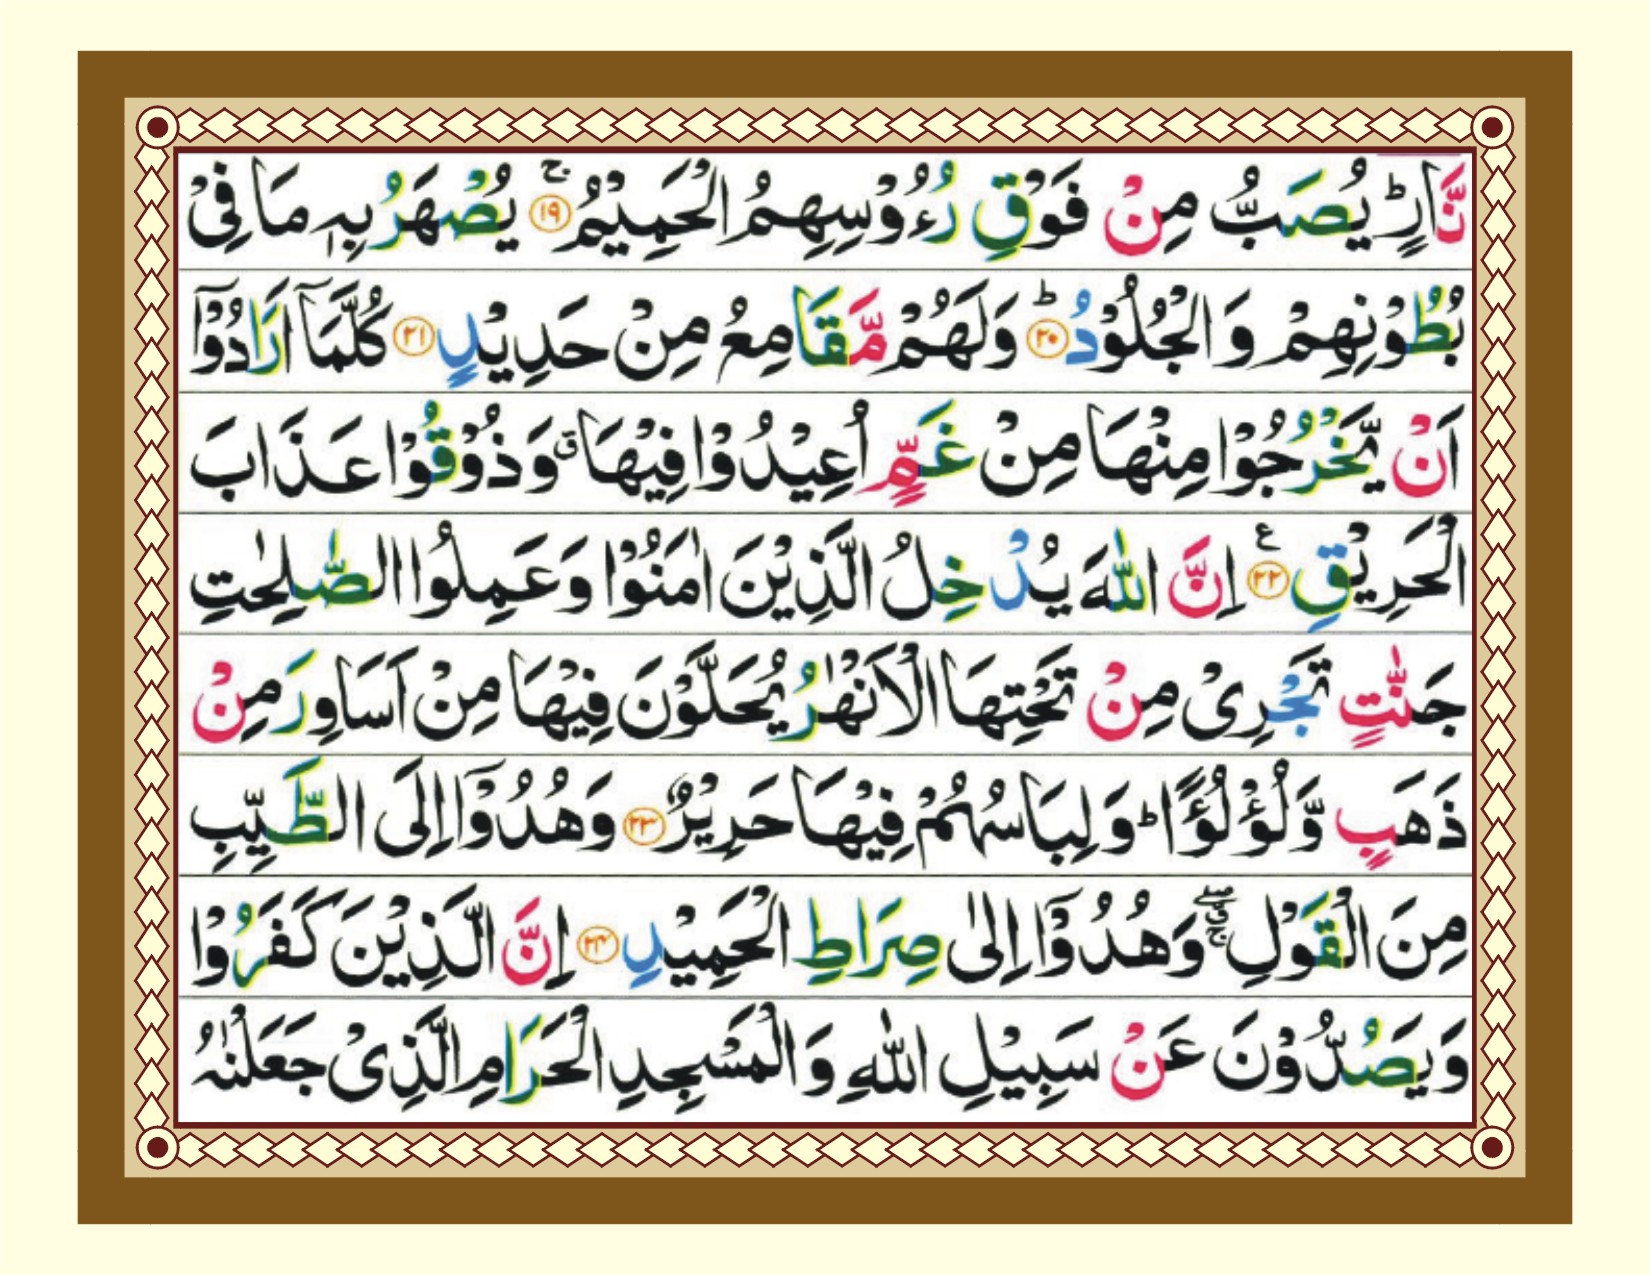 نَّارٍؕ يُصَبُّ مِنْ فَوْقِ رُءُوْسِهِمُ الْحَمِيْمُ ۚ﴿۱۹﴾ يُصْهَرُ بِهٖ مَا فِىْ
بُطُوْنِهِمْ وَ الْجُلُوْدُ ؕ﴿۲۰﴾ وَلَهُمْ مَّقَامِعُ مِنْ حَدِيْدٍ ﴿۲۱﴾ كُلَّمَاۤ اَرَادُوْۤا
اَنْ يَّخْرُجُوْا مِنْهَا مِنْ غَمٍّ اُعِيْدُوْا فِيْهَا ۗ وَذُوْقُوْا عَذَابَ
الْحَرِيْقِ ﴿۲۲﴾ ع اِنَّ اللّٰهَ يُدْخِلُ الَّذِيْنَ اٰمَنُوْا وَعَمِلُوا الصّٰلِحٰتِ
جَنّٰتٍ تَجْرِىْ مِنْ تَحْتِهَا الْاَنْهٰرُ يُحَلَّوْنَ فِيْهَا مِنْ اَسَاوِرَ مِنْ
ذَهَبٍ وَّلُؤْلُؤًا ؕ وَلِبَاسُهُمْ فِيْهَا حَرِيْرٌ ﴿۲۳﴾ وَهُدُوْۤا اِلَى الطَّيِّبِ
مِنَ الْقَوْلِ ۖۚ وَهُدُوْۤا اِلٰى صِرَاطِ الْحَمِيْدِ ﴿۲۴﴾ اِنَّ الَّذِيْنَ كَفَرُوْا
وَيَصُدُّوْنَ عَنْ سَبِيْلِ اللّٰهِ وَالْمَسْجِدِ الْحَرَامِ الَّذِىْ جَعَلْنٰهُ